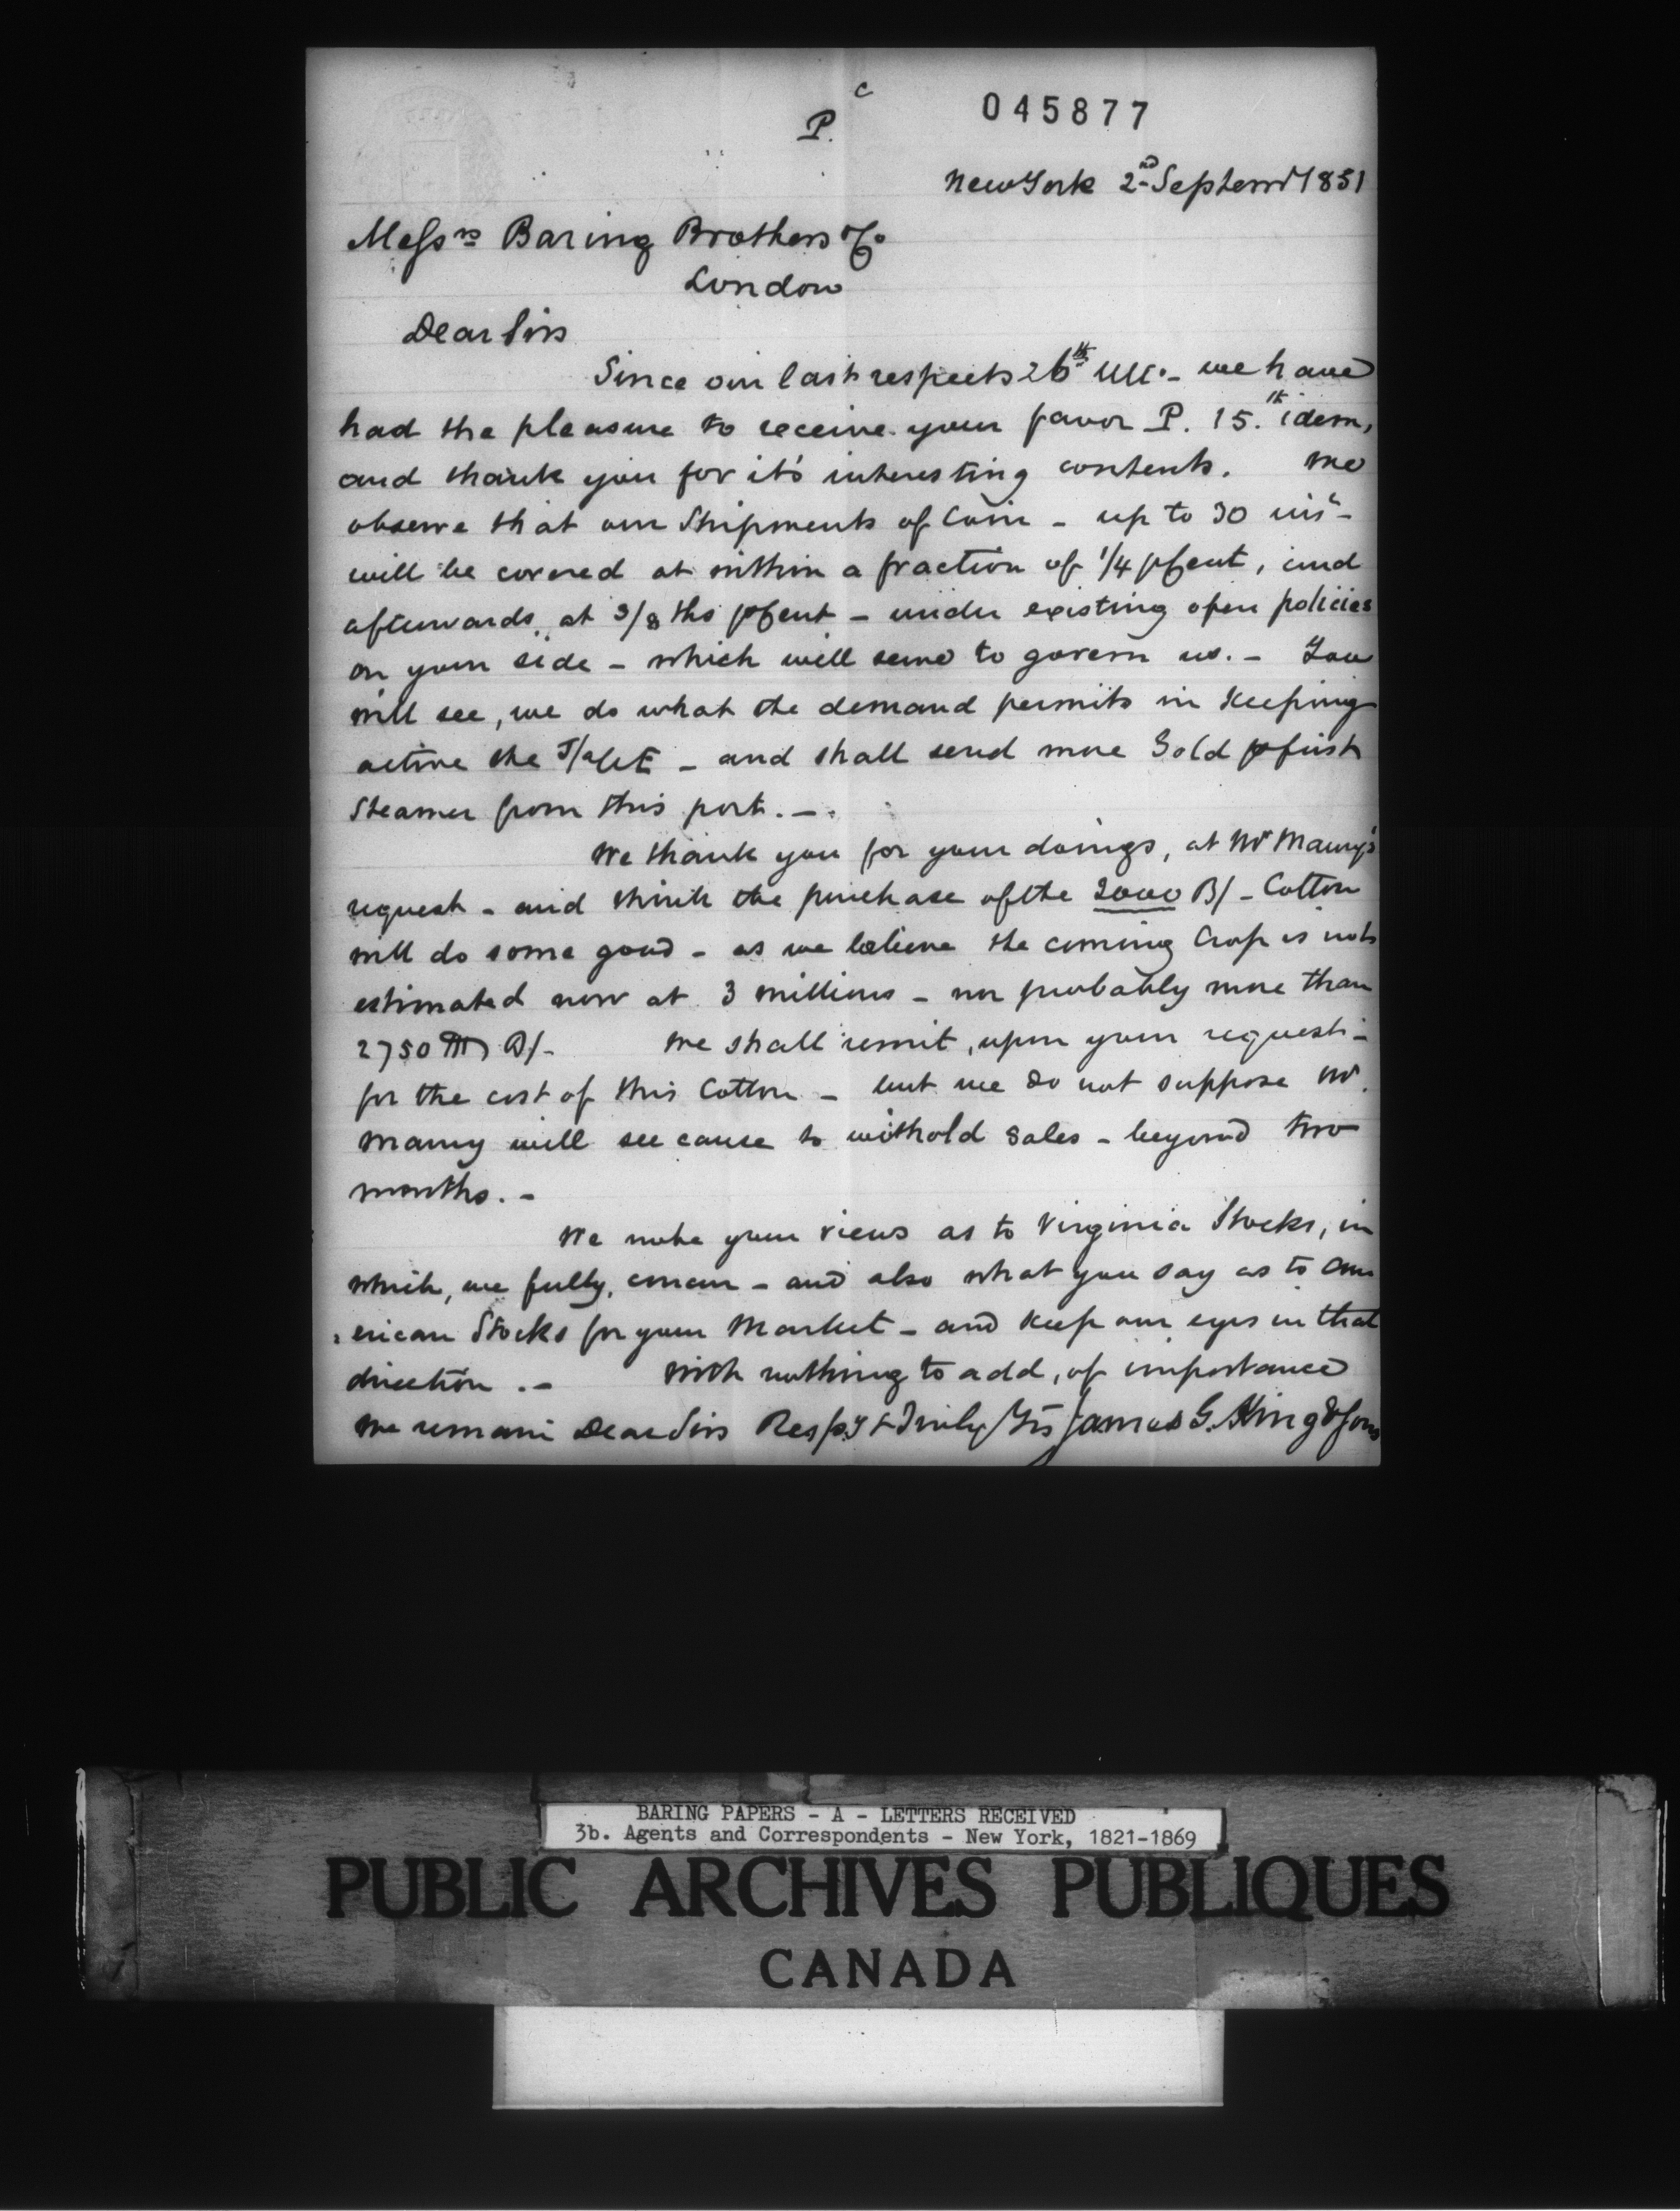 P. c
045877
New York 2nd Septemr 1851
Messrs Baring Brothers & Co
London
Dear Sirs
Since our last respects 26th Ult. - we have
had the pleasure to receive your favor P. 15.th idem,
and thank you for it's interesting contents. We
observe that our Shipments of Coin - up to 30 ins -
will be covered at within a fraction of 1/4 pCent, and
afterwards at 3/8ths pCent - under existing open policies
on your side - which will serve to govern us. - You
will see, we do what the demand permits in Keeping
active the J/a - and shall send more Gold p first
Steamer from this port. -
We thank you for your doings, at Mr Maury's
request - and think the purchase of the 2000 B/ - Cotton
will do some good - as we believe the coming Crop is not
estimated now at 3 millions - nor probably more than
2750 M B/ - We shall remit, upon your request -
for the cost of this Cotton - but we do not suppose Mr.
Maury will see cause to withold sales - beyond two
months. -
We note your views as to Virginia Stocks, in
which, we fully, concur - and also what you say as to Am
erican Stocks for your Market - and keep our eyes in that
direction. - With nothing to add, of importance
We remain Dear Sirs Respy & Truly Yrs James G. King & Sons
BARING PAPERS - A - LETTERS RECEIVED
3b. Agents and Correspondents - New York, 1821-1869
PUBLIC ARCHIVES PUBLIQUES
CANADA